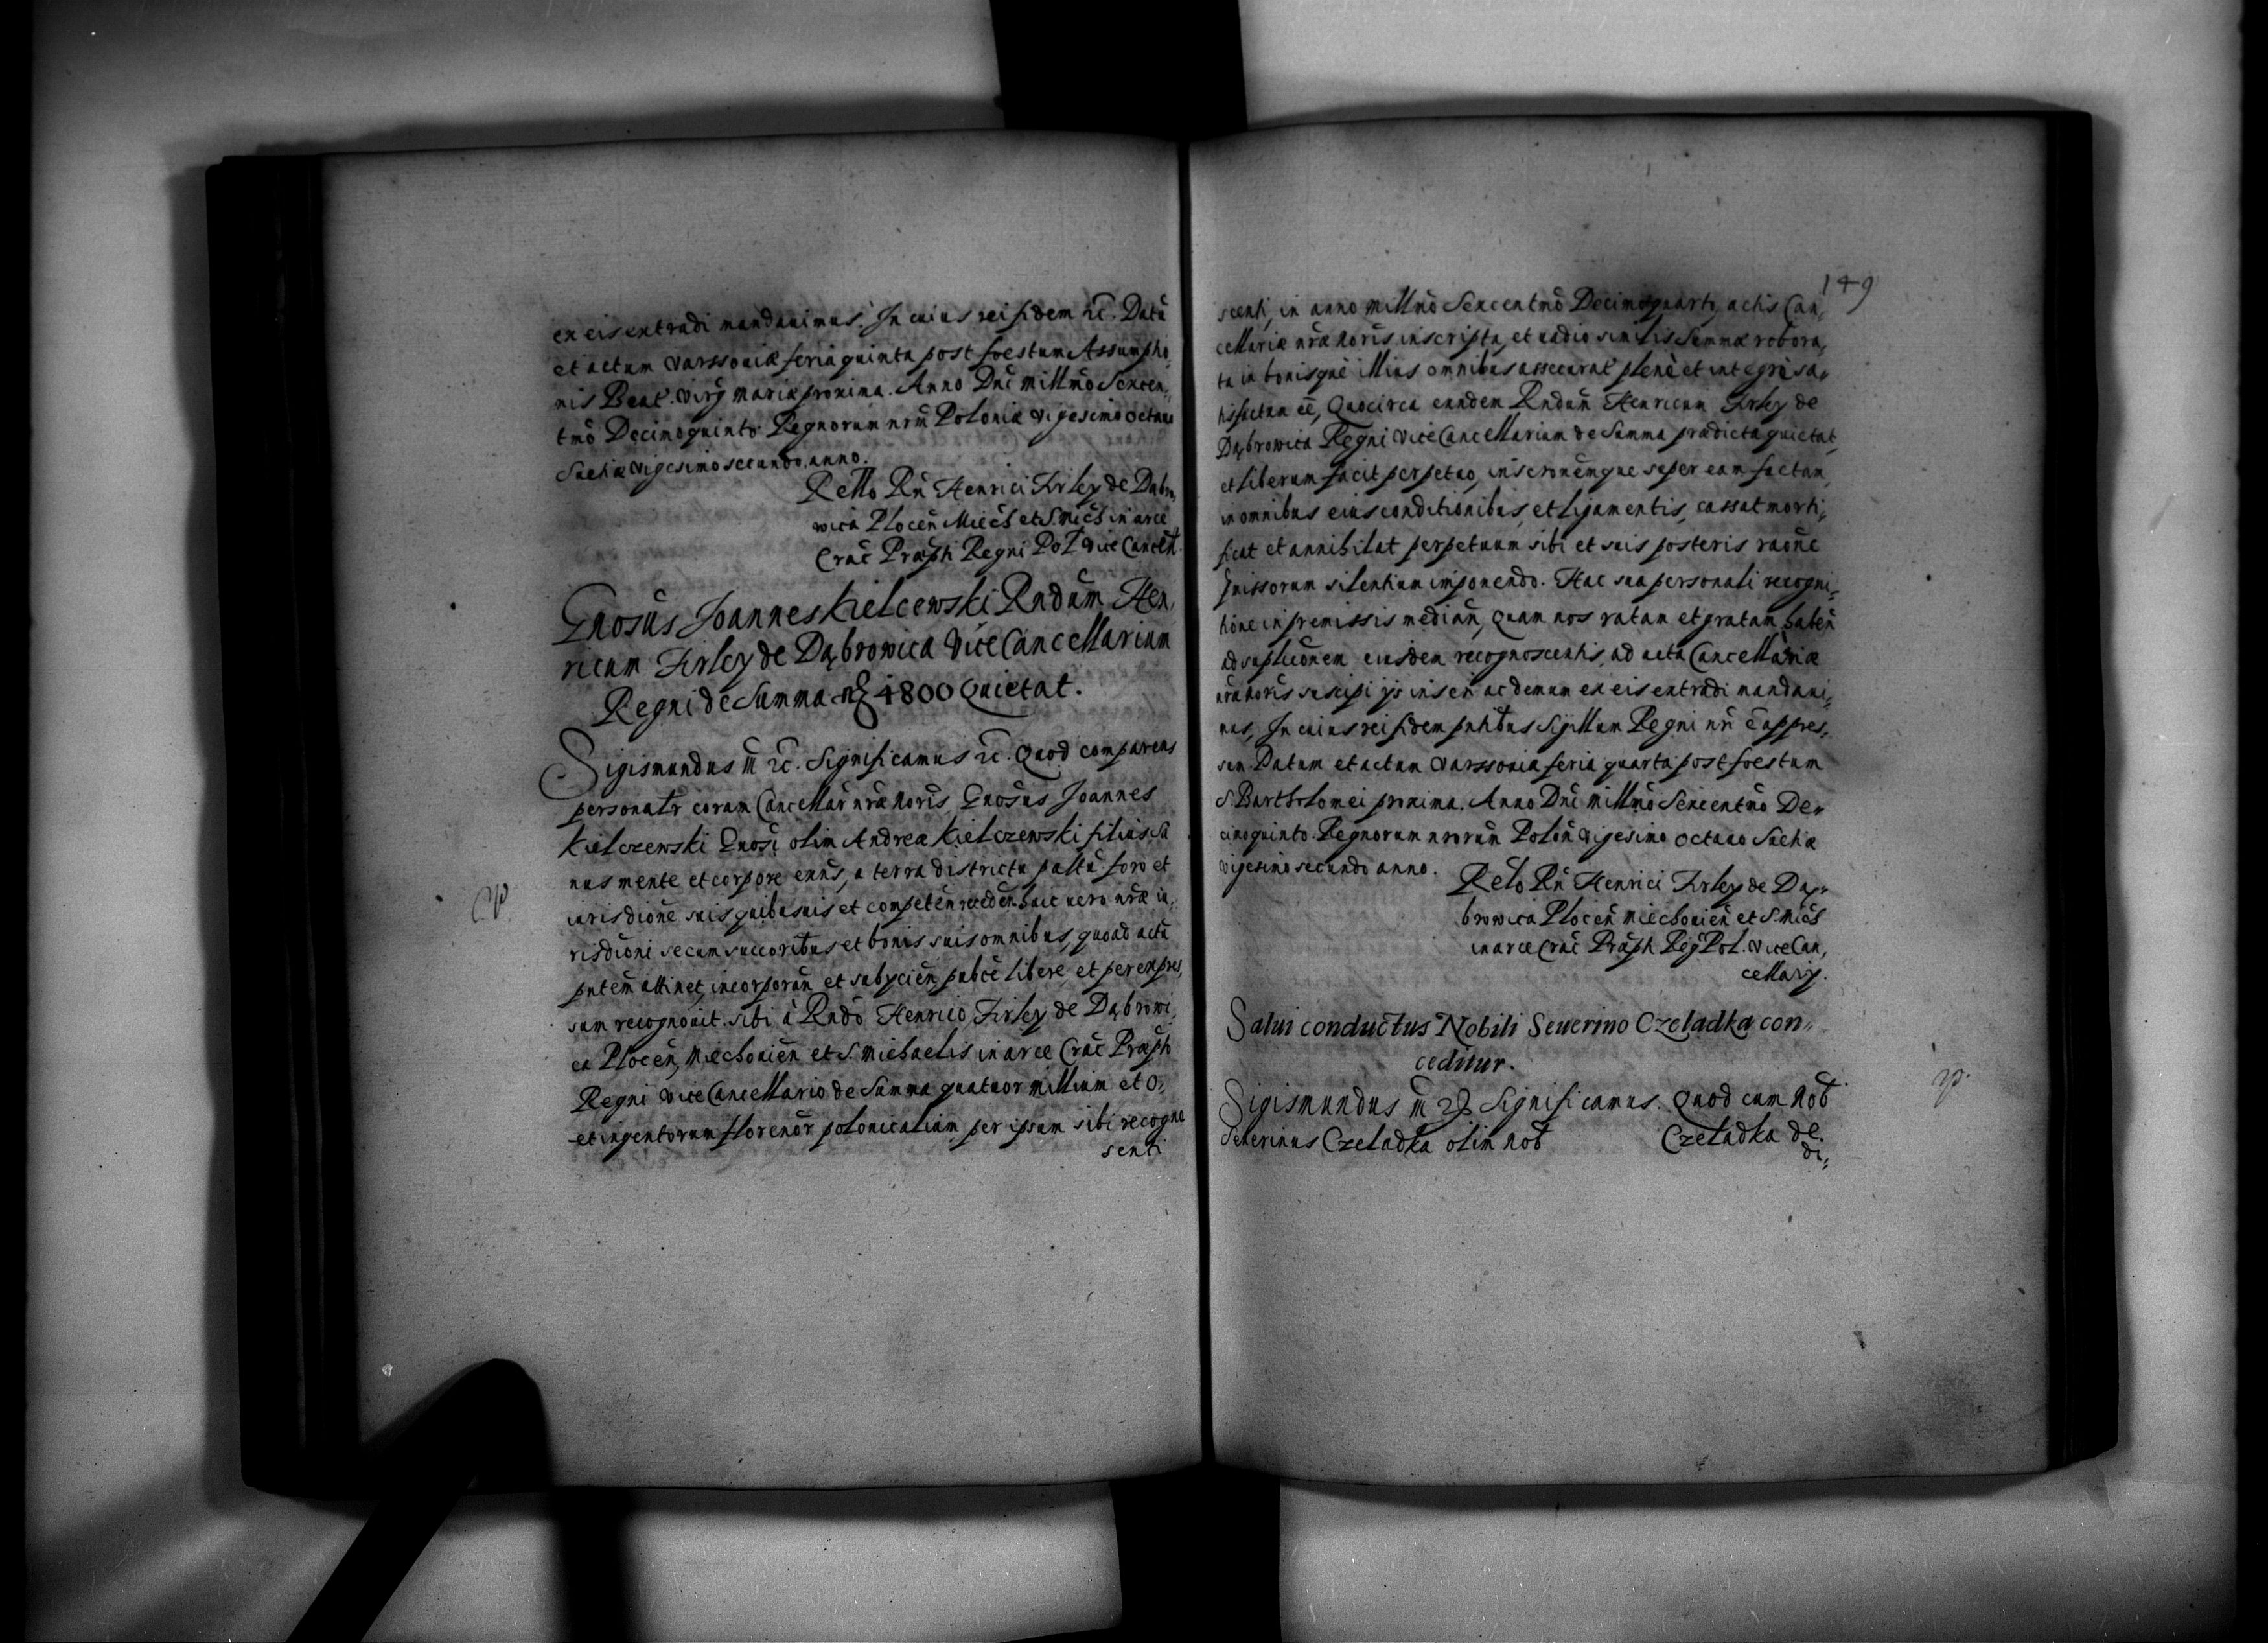 ex eis extradi mandauimus. In cuius rei fidem &c. Datũ
et actum Varssouiæ feria quinta post foestum Assumptio,
nis Beat. Virg Mariæ proxima. Anno Dni Millmo Sexcen,
tmo Decimoquinto Regnorum nrm Poloniæ Vigesimo octauo
Sueciæ Vigesimosecundo anno.
Rello Rñ Henrici Firley de Dąbro,
wica Plocen̄ Miech et S. Mich in arce
Crac̄ Præpti Regni Pol Vice Cancell.
Gnosus Joannes Kielcewski Rndum Hen,
ricum Firley de Dąbrowica Vice Cancellarium
Regni de Summa 4800 Quietat.
Sigismundus III &c. Significamus &c. Quod comparens
personatr coram Cancellar nra Noris Gnosus Joannes
Kielczewski Gnosi olim Andrea Kielczewski filius Sa
nus mente et corpore exñs, a terra districtu palltũ foro et
iurisdione suis quibusuis et competeñ recedeñ huic uero nræ iu,
risdioni se cum succoribus et bonis suis omnibus, quoad actũ
pntem attinet, incorporañ et subycieñ, pubce libere, et per expres,
sum recognouit. Sibi à Rndo Henrico Firley de Dąbrowi,
ca Ploceñ, Miechouieñ et S. Michaelis in arce Crac Præpto
Regni Vice Cancellario de Summa quatuor millium et o,
ctingentorum florenor polonicalium per ipsum sibi recogno
scenti
149
scenti, in anno Millmo Sexcentmo Decimoquarto, actis Can,
cellariæ nræ Noris inscripta, et uadio similis Summæ robora,
ta in bonisque illius omnibus assecurat plenè et integrè sa,
tisfactum eē, Quocirca eundem Rndum Henricum Firley de
Dąbrowica Regni Vice Cancellarium de Summa prædicta quietat,
et liberum facit perpetuo, inscronemque super eam factam,
in omnibus eius conditionibus, et ligamentis, cassat morti,
ficat et annihilat perpetuum sibi et suis posteris raone
pmissorum silentium imponendo. Hac sua personali recogni,
tione in premissis median, quam nos ratam et gratam haben
ad supliconem eiusdem recognoscentis, ad acta Cancellariæ
nræ Noris suscipi ys inseri ac demum ex eis extradi mandaui,
mus, In cuius rei fidem pntibus Sigillum Regni nri e appres,
sum. Datum et actum Varssouiæ feria quarta post foestum
S. Bartholomei proxima. Anno Dni Millmo Sexcentmo De,
cimoquinto. Regnorum nrorum Polon Vigesimo octauo Sueciæ
Vigesimosecundo anno.
Relo Rñ Henrici Firley de Dą,
browica Ploceñ Miechouieñ et S. Mich
in arce Crac Præpti Reg Pol. Vice Can,
cellarij.
Salui conductus Nobili Seuerino Czeladka con,
ceditur.
Sigismundus III &c Significamus. Quod cum Nob
Seuerinus Czeladka olim Nob Czeladka de.
di,